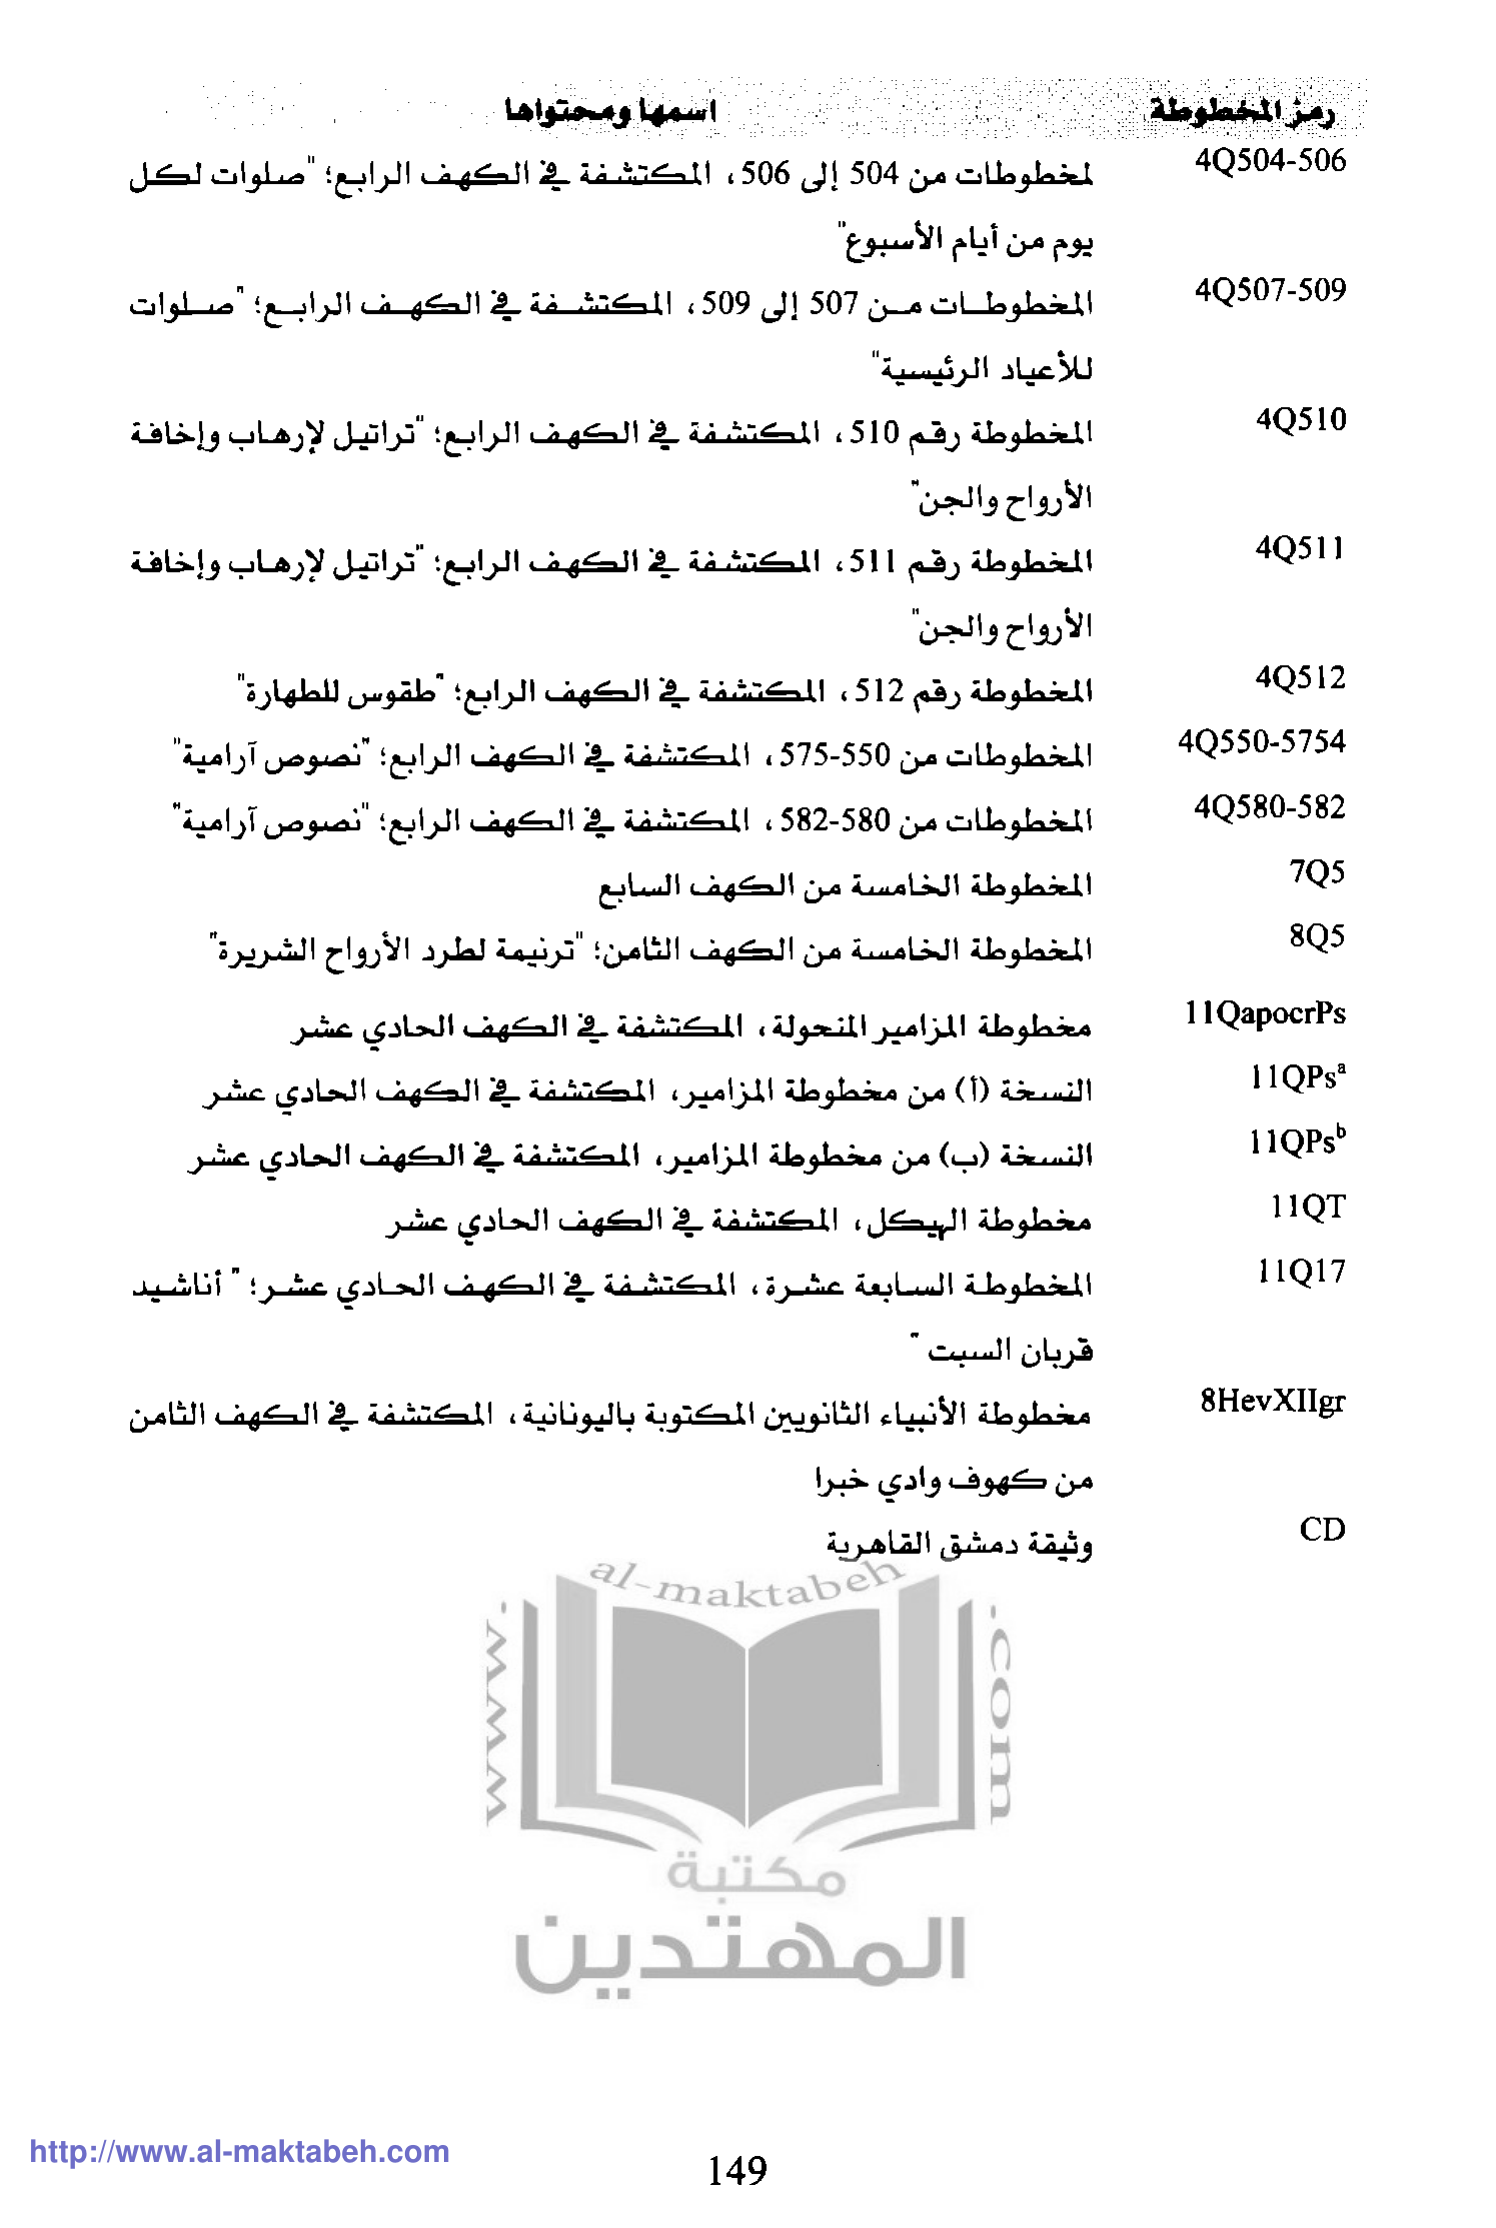 رمز المخطوطة اسمها ومحتواها
4Q504-506 لمخطوطات من 504 إلى 506، المكتشفة في الكهف الرابع؛ "صلوات لكل
يوم من أيام الأسبوع"
4Q507-509 المخطوطات من 507 إلى 509، المكتشفة في الكهف الرابع؛ "صلوات
للأعياد الرئيسية"
4Q510 المخطوطة رقم 510، المكتشفة في الكهف الرابع؛ "تراتيل لإرهاب وإخافة
الأرواح والجن"
4Q511 المخطوطة رقم 511، المكتشفة في الكهف الرابع؛ "تراتيل لإرهاب وإخافة
الأرواح والجن"
4Q512 المخطوطة رقم 512، المكتشفة في الكهف الرابع؛ "طقوس للطهارة"
4Q550-5754 المخطوطات من 550-575، المكتشفة في الكهف الرابع؛ "نصوص آرامية"
4Q580-582 المخطوطات من 580-582، المكتشفة في الكهف الرابع؛ "نصوص آرامية"
7Q5 المخطوطة الخامسة من الكهف السابع
8Q5 المخطوطة الخامسة من الكهف الثامن؛ "ترنيمة لطرد الأرواح الشريرة"
11QapocrPs مخطوطة المزامير المنحولة، المكتشفة في الكهف الحادي عشر
11QPsª النسخة (أ) من مخطوطة المزامير، المكتشفة في الكهف الحادي عشر
11QPsᵇ النسخة (ب) من مخطوطة المزامير، المكتشفة في الكهف الحادي عشر
11QT مخطوطة الهيكل، المكتشفة في الكهف الحادي عشر
11Q17 المخطوطة السابعة عشرة، المكتشفة في الكهف الحادي عشر؛ " أناشيد
قربان السبت "
8HevXIIgr مخطوطة الأنبياء الثانويين المكتوبة باليونانية، المكتشفة في الكهف الثامن
من كهوف وادي خبرا
CD وثيقة دمشق القاهرية
www.al-maktabeh.com
مكتبة
المهتدين
http://www.al-maktabeh.com
149